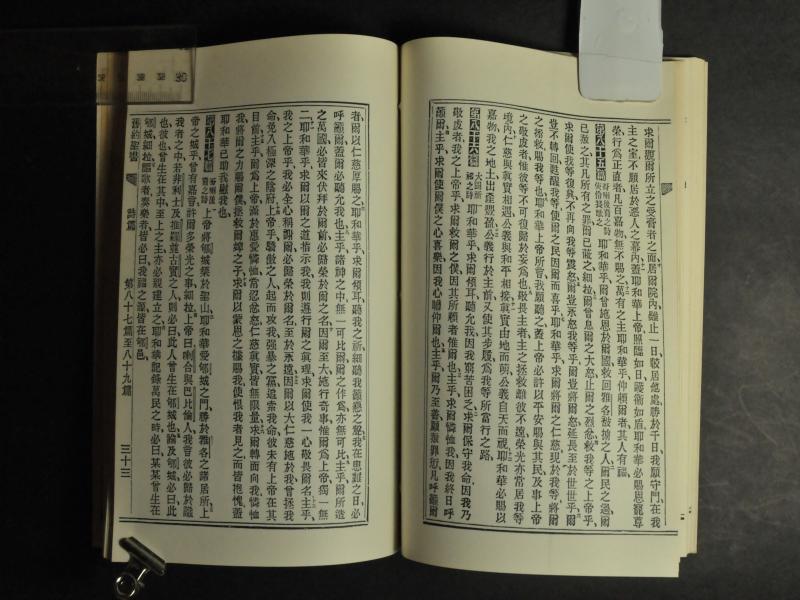 求爾觀爾所立之受膏者之面居爾院內雖止一日較居他處勝於千日我願守門在我
主之室不願居於惡人之幕內蓋耶和華上帝照臨如日護衞如盾耶和華必賜恩寵尊
榮行爲正直者凡百嘉物無不賜之萬有之主耶和華乎仰賴爾者其人有福
第八十五篇 哥喇後裔之詩使伶長歌之 耶和華乎爾曾施恩於爾國救回雅各被擄之人爾民之過爾
已赦之其凡所有之罪爾已蔽之細拉爾曾息爾之大怒止爾之烈忿救我等之上帝乎
求爾使我等復興不再向我等震怒爾豈永怒我等乎爾豈將爾怒延長至於世世乎爾
豈不轉回甦醒我等使爾之民因爾而喜乎耶和華乎求爾將爾之仁慈現於我等將爾
之拯救賜我等也耶和華上帝所言我願聽之蓋上帝必許以平安賜與其民及事上帝
之敬虔者惟彼等不可復歸於妄爲也敬畏主者主之拯救離彼不遠榮光亦常居我等
境內仁慈與眞實相遇公義與和平相接眞實由地而萌公義自天而視耶和華必賜以
嘉物我之地土出產豐盛公義行於主前又使其步履爲我等所當行之路
第八十六篇 大闢祈禱之詩 耶和華乎求爾傾耳聽允我因我窮苦困乏求爾保守我命因我乃
敬虔者我之上帝乎求爾救爾之僕因其所賴者惟爾也主乎求爾憐恤我因我終日呼
籲爾主乎求爾使爾僕之心喜樂因我心仰爾也主乎爾乃至善願赦罪愆凡呼籲爾
者爾以仁慈厚賜之耶和華乎求爾傾耳聽我之祈細聽我籲懇之聲我在患難之日必
呼籲爾蓋爾必聽允我也主乎諸神之中無一可比爾爾之作爲亦無可比主乎爾所造
之萬國必皆來伏拜於爾前必歸榮於爾名因爾至大施行奇事惟爾爲上帝獨一無
二耶和華乎求爾以爾之道指示我我則遵行爾之眞理求爾使我一心敬畏爾名主乎
我之上帝乎我必全心稱謝爾必歸榮於爾名至於永遠因爾以大仁慈施於我曾拯我
命免入極深之陰府上帝乎驕傲之人起而攻我強暴之黨追索我命彼未有上帝在其
目前主乎爾爲上帝滿於恩愛憐恤常忍忿怒仁慈眞實皆無限量求爾轉面向我憐恤
我將爾之力賜爾僕拯救爾婢之子求爾以蒙恩之據賜我使恨我者見之而皆抱愧蓋
耶和華已助我慰我也
第八十七篇 哥喇後裔之詩 上帝將郇城築於聖山耶和華愛郇城之門勝於雅各之諸居所上
帝之城乎曾有嘉言許爾多榮光之事細拉上帝曰喇合與巴比倫人我言彼必歸於識
我者之中若非利士及推羅並古實之人則必曰此人曾生在郇城也論及郇城必曰此
也彼也曾生在其中至上之主亦必親建立之耶和華記錄萬民之時必曰某某曾生在
郇城細拉謳歌者奏樂者皆必曰我諸之源皆在郇邑
舊約聖書 詩篇 第八十七篇至八十九篇 三十三